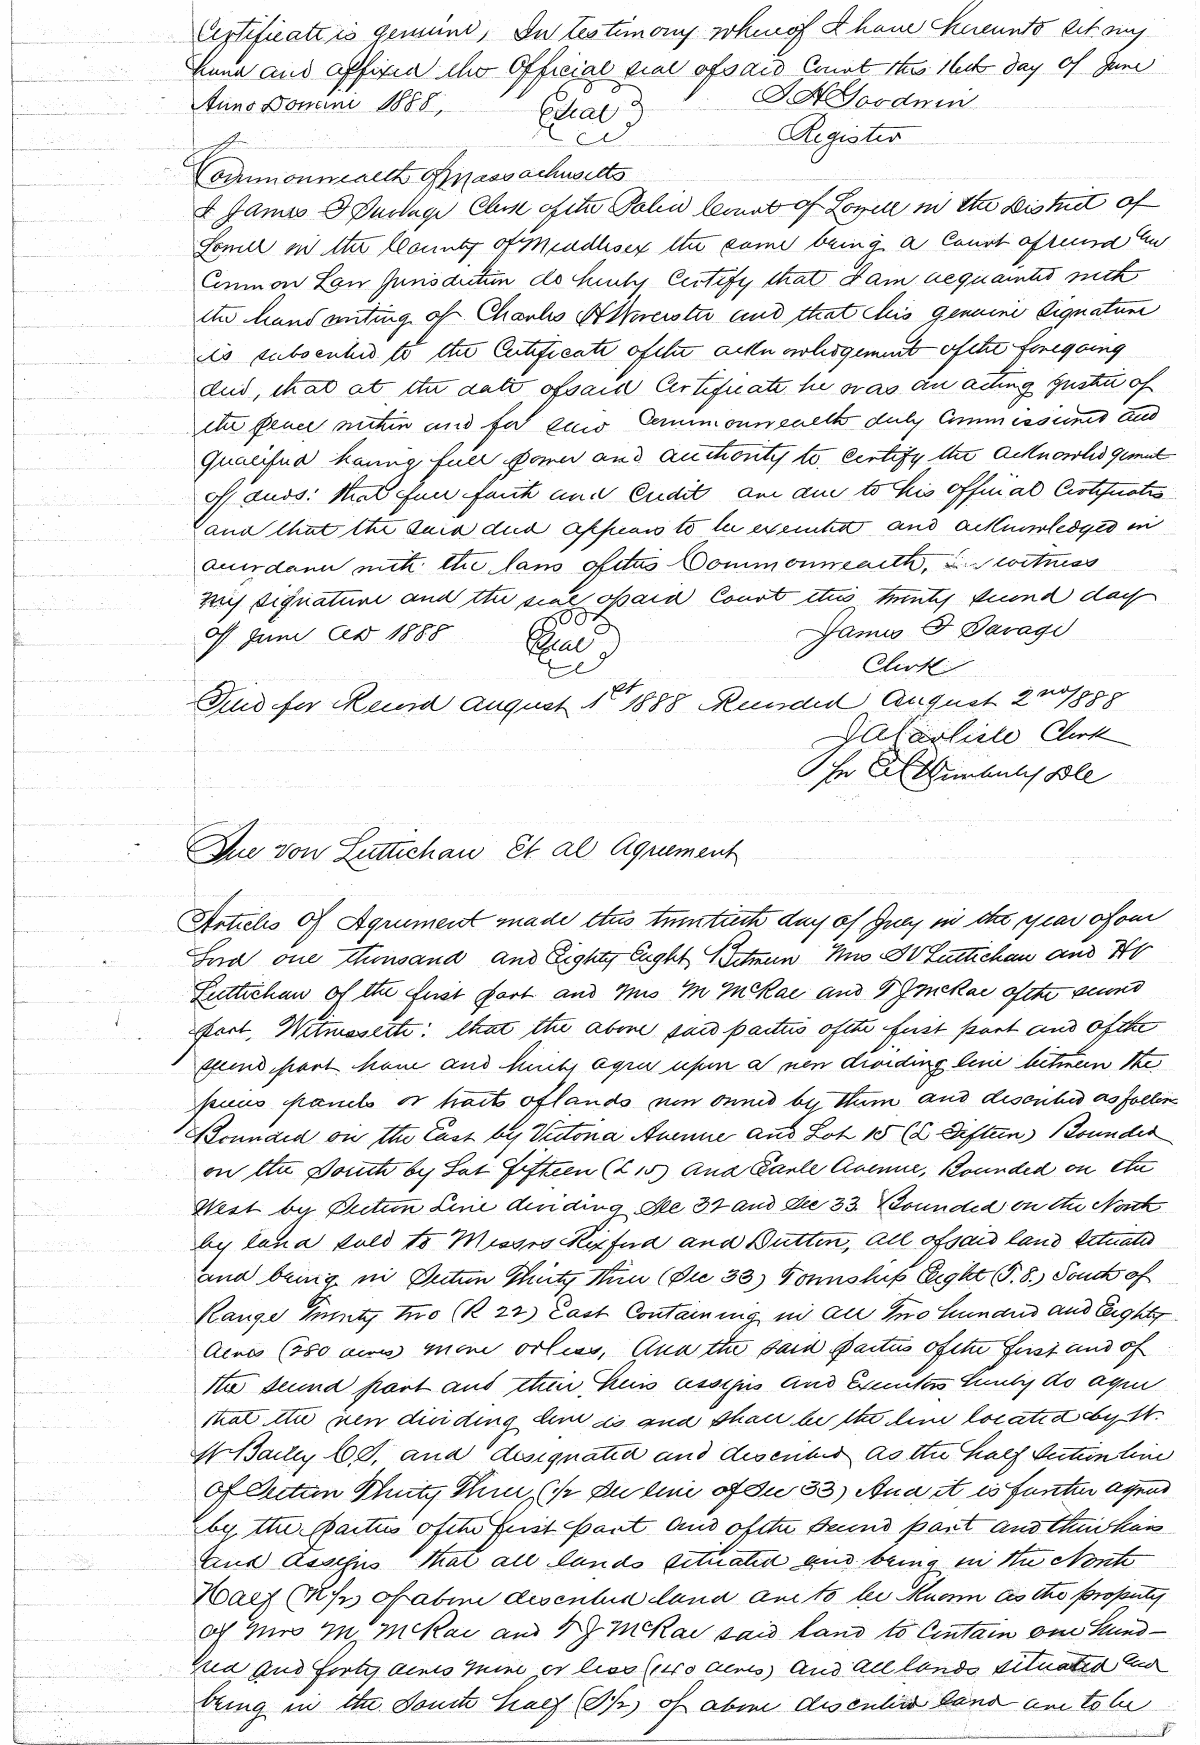 Certificate is genuine, In testimony whereof I have hereunto set my
hand and affixed the Official seal of said Court this 16th day of June
Anno Domini 1888,
Seal
Goodwin
Register
Commonwealth of Massachusetts
I James F Savage Clerk of the Police Court of Lowell in the District of
Lowell in the County of Middlesex the same being a Court of record and
Common Law Jurisdiction do hereby Certify that I am acquainted with
the hand writing of Charles H Worcester and that his genuine Signature
is subscribed to the Certificate of the acknowledgement of the foregoing
deed, that at the date of said Certificate he was an acting Justice of
the peace within and for said Commonwealth duly Commissioned and
Qualified having full power and authority to certify the acknowledgement
of deeds: that full faith and Credit are due to his official Certificates
and that the said deed appears to be executed and acknowledged in
accordance with the laws of this Commonwealth, witness
my signature and the seal of said Court this twenty second day
of June AD 1888
Seal
James F Savage
Clerk
Filed for Record August 1st 1888 Recorded August 2nd 1888
J A Carlisle Clerk
Per Wimberly Dle
Due von Luttichau Et al Agreement
Articles Of Agreement made this twentieth day of July in the year of our
Lord one thousand and Eighty Eight Between Mrs D V Luttichau and H V
Luttichau of the first part and Mrs M McRae and T J McRae of the second
part, Witnesseth: that the above said parties of the first part and of the
second part have and hereby agree upon a new dividing line between the
pieces parcels or tracts of lands now owned by them and described as follows
Bounded on the East by Victoria Avenue and Lot 15 (L Fifteen) Bounded
on the South by Lot fifteen (L 15) and Earle Avenue, Bounded on the
West by Section Line dividing Sec 32 and Sec 33 Bounded on the North
by land sold to Messrs Rixford and Dutton, all of said land situated
and being in Section Thirty three (Sec 33) Township Eight (T. 8.) South of
Range Twenty two (R 22) East Containing in all Two hundred and Eighty
Acres (280 acres) more or less, And the said parties of the first and of
the second part and their heirs assigns and Executors hereby do agree
that the new dividing line is and shall be the line located by W.
W Bailey C.S. and designated and described as the half Section line
of Section Thirty Three, (1/2 Sec line of Sec 33) And it is further agreed
by the parties of the first part and of the second part and their heirs
and assigns that all lands situated and being in the North
Half (N 1/2) of above described land are to be Known as the property
of Mrs M. McRae and T J McRae said land to Contain one Hund-
red and forty acres more or less (140 acres) and all lands situated and
being in the South half (S 1/2) of above described land are to be